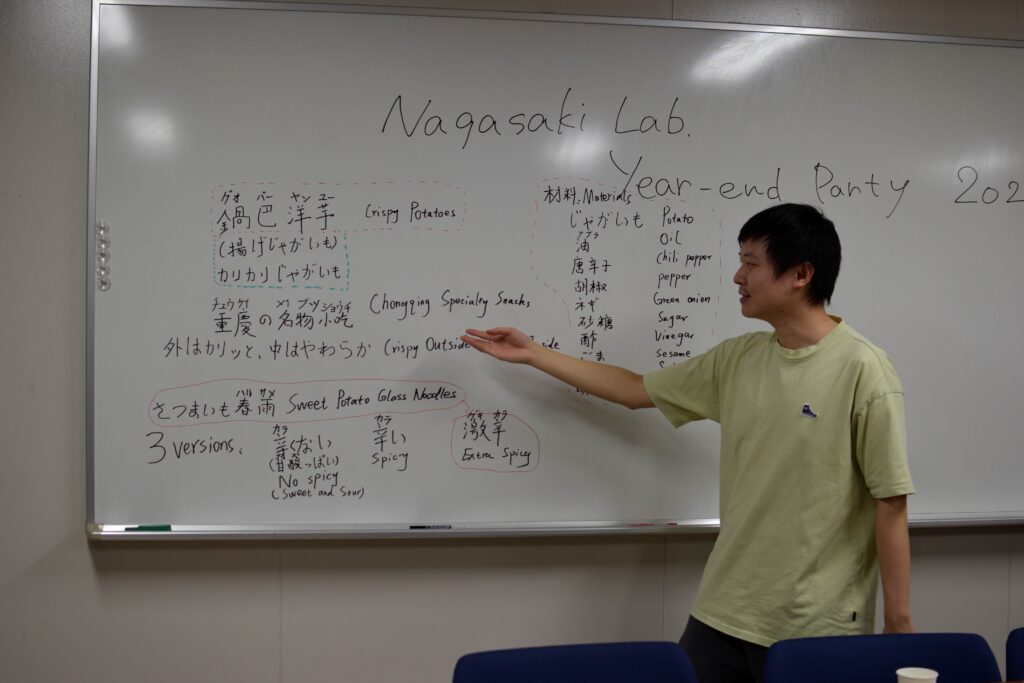 Nagasaki Lab.
Year-end Party 202
グオ バー ヤン ユー
鍋巴洋芋 Crispy Potatoes
(揚げじゃがいも)
カリカリじゃがいも
チュウケイ メイ ブツ ショウチ
重慶の名物小吃 Chongqing Specialty Snacks
外はカリッと、中はやわらか Crispy Outside
さつまいも春雨 Sweet Potato Glass Noodles
ハル サメ
3 versions.
カラ
辛くない
(甘酸っぱい)
No spicy
(Sweet and Sour)
カラ
辛い
Spicy
ゲキ カラ
激辛
Extra Spicy
材料. Materials
じゃがいも Potato
アブラ
油 Oil
唐辛子 Chili pepper
胡椒 pepper
ネギ Green onion
砂糖 Sugar
酢 Vinegar
ごま Sesame